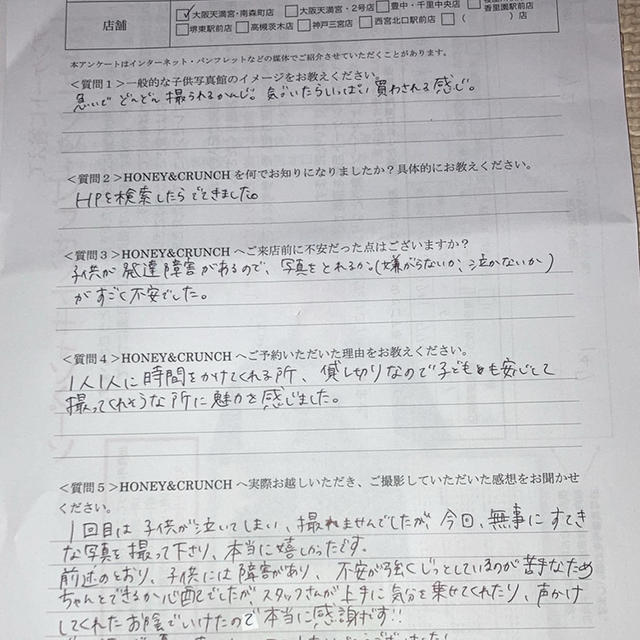 店舗
✓大阪天満宮・南森町店 □大阪天満宮・2号店 □豊中・千里中央店
香里園駅前店
□堺東駅前店 □高槻茨木店 □神戸三宮店 □西宮北口駅前店 □( )
本アンケートはインターネット・パンフレットなどの媒体でご紹介させていただくことがあります。
＜質問１＞一般的な子供写真館のイメージをお教えください。
急いで どんどん 撮られるかんじ。気づいたらいっぱい買わされる感じ。
＜質問２＞HONEY&CRUNCH を何でお知りになりましたか？具体的にお教えください。
HPを検索したらでてきました。
＜質問３＞HONEY&CRUNCH へご来店前に不安だった点はございますか？
子供が発達障害があるので、写真をとれるか。(嫌がらないか、泣かないか)
がすごく不安でした。
＜質問４＞HONEY&CRUNCH へご予約いただいた理由をお教えください。
1人1人に時間をかけてくれる所、貸し切りなので子どもも安心して
撮ってくれそうな所に魅力を感じました。
＜質問５＞HONEY&CRUNCH へ実際お越しいただき、ご撮影していただいた感想をお聞かせ
ください。
1回目は子供が泣いてしまい、撮れませんでしたが、今日、無事にすてき
な写真を撮って下さり、本当に嬉しかったです。
前述のとおり、子供には障害があり、不安が強くじっとしているのが苦手なため
ちゃんとできるか心配でしたが、スタッフさんが上手に気分を乗せてくれたり、声かけ
してくれたお陰でいけたので本当に感謝です!!